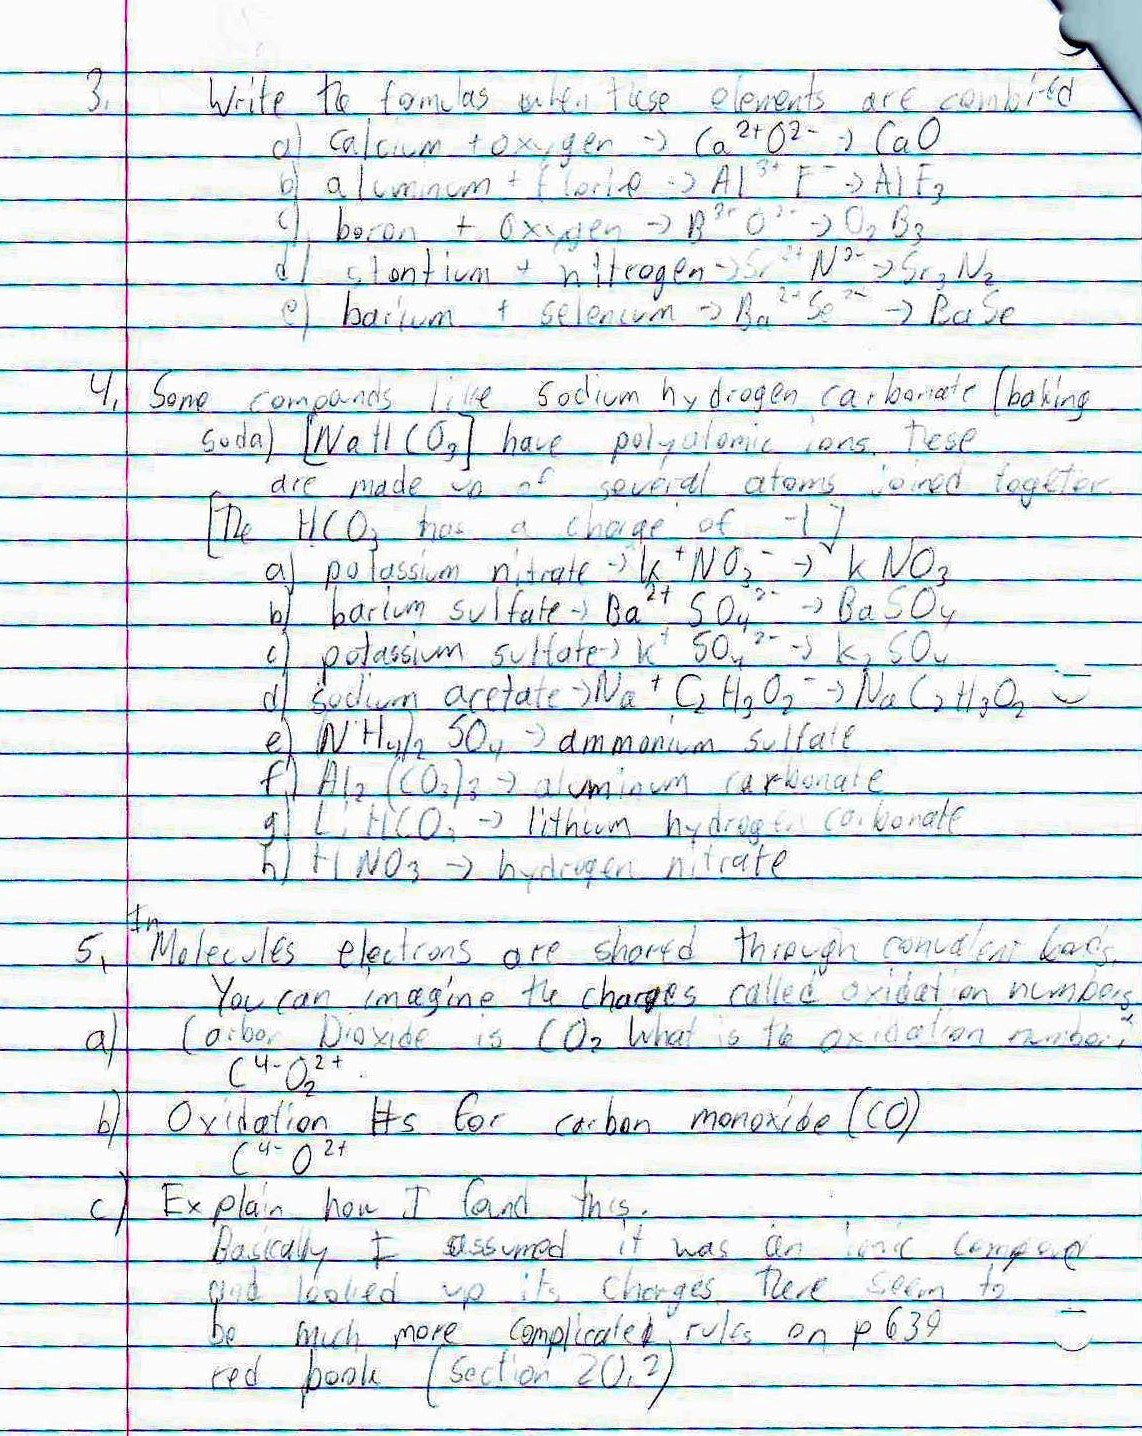 3. Write the fomulas when these elements are combined
a) calcium + oxygen -> Ca²⁺O²⁻ -> CaO
b) aluminum + -> Al³⁺ F⁻ -> AlF₃
c) boron + Oxygen -> B³⁺ O²⁻ -> O₂ B₃
d) stontium + nitrogen -> Sr²⁺ N³⁻ -> Sr₃ N₂
e) barium + selenium -> Ba²⁺ Se²⁻ -> BaSe
4. Some compounds like sodium hydrogen carbonate (baking
soda) [NaHCO₃] have polyatomic ions. These
are made up of several atoms joined together.
[The HCO₃ has a charge of -1]
a) potassium nitrate -> k⁺NO₃⁻ -> kNO₃
b) barium sulfate -> Ba²⁺ SO₄²⁻ -> BaSO₄
c) potassium sulfate -> k⁺ SO₄²⁻ -> k₂SO₄
d) sodium acetate -> Na⁺ C₂H₃O₂⁻ -> NaC₂H₃O₂
e) NH₄)₂ SO₄ -> ammonium sulfate
f) Al₂(CO₃)₃ -> aluminum carbonate
g) LiHCO₃ -> lithium hydrogen carbonate
h) HNO₃ -> hydrogen nitrate
5. In Molecules electrons are shared through
You can imagine the charges called oxidation numbers
a) Carbon Dioxide is CO₂ What is the oxidation number?
C⁴⁻O₂²⁺
b) Oxidation #s for carbon monoxide (CO)
C⁴⁻ O²⁺
c) Explain how I found this.
Basically I assumed it was an ionic
and looked up its charges. There seem to
be much more complicated rules on p 639
red book (section 20.2)